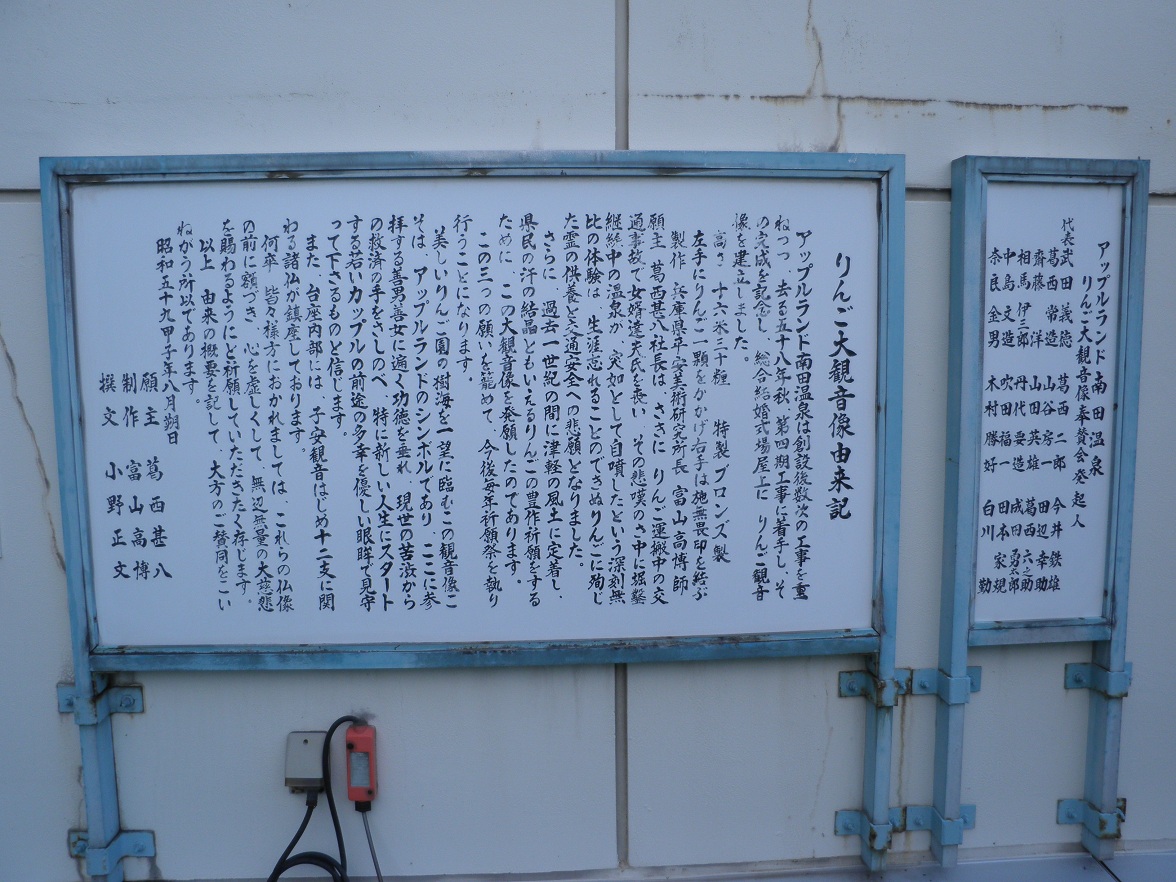 アップルランド南田温泉
りんご大観音像奉賛会発起人
代表武田義徳 葛西二郎 今井鉄雄
葛西常造 山谷房一 田辺幸助
齋藤洋 山田英雄 葛西六之助
相馬伊三郎 丹代甚造 成田勇太郎
中島文造 吹田福一 田本家規
奈良金男 木村勝好 白川勤
りんご大観音像由来記
アップルランド南田温泉は創設後数次の工事を重
ねつつ、去る五十八年秋、第四期工事に着手し、そ
の完成を記念し、総合結婚式場屋上に りんご観音
像を建立しました。
高さ 十六米三十糎 特製ブロンズ製
左手にりんご一顆をかかげ右手は施無畏印を結ぶ
製作 兵庫県平安美術研究所長 富山高博師
願主 葛西甚八社長は、さきに りんご運搬中の交
通事故で女婿達夫氏を喪い、その悲嘆のさ中に堀鑿
継続中の温泉が、突如として自噴したという深刻無
比の体験は、生涯忘れることのできぬりんごに殉じ
た霊の供養と交通安全への悲願となりました。
さらに、過去一世紀の間に津軽の風土に定着し、
県民の汗の結晶ともいえるりんごの豊作祈願をする
ために、この大観音像を発願したのであります。
この三つの願いを籠めて、今後毎年祈願祭を執り
行うことになります。
美しいりんご園の樹海を一望に臨むこの観音像こ
そは、アップルランドのシンボルであり、ここに参
拝する善男善女に遍く功徳を垂れ、現世の苦渋から
の救済の手をさしのべ、特に新しい人生にスタート
する若いカップルの前途の多幸を優しい眼眸で見守
って下さるものと信じます。
また、台座内部には、子安観音はじめ十二支に関
わる諸仏が鎮座しております。
何卒 皆々様方におかれましては、これらの仏像
の前に額づき、心を虚しくして、無辺無量の大慈悲
を賜わるようにご祈願していただきたく存じます。
以上 由来の概要を記して、大方のご賛同をこい
ねがう所以であります。
昭和五十九甲子年八月朔日
願主 葛西甚八
制作 富山高博
撰文 小野正文